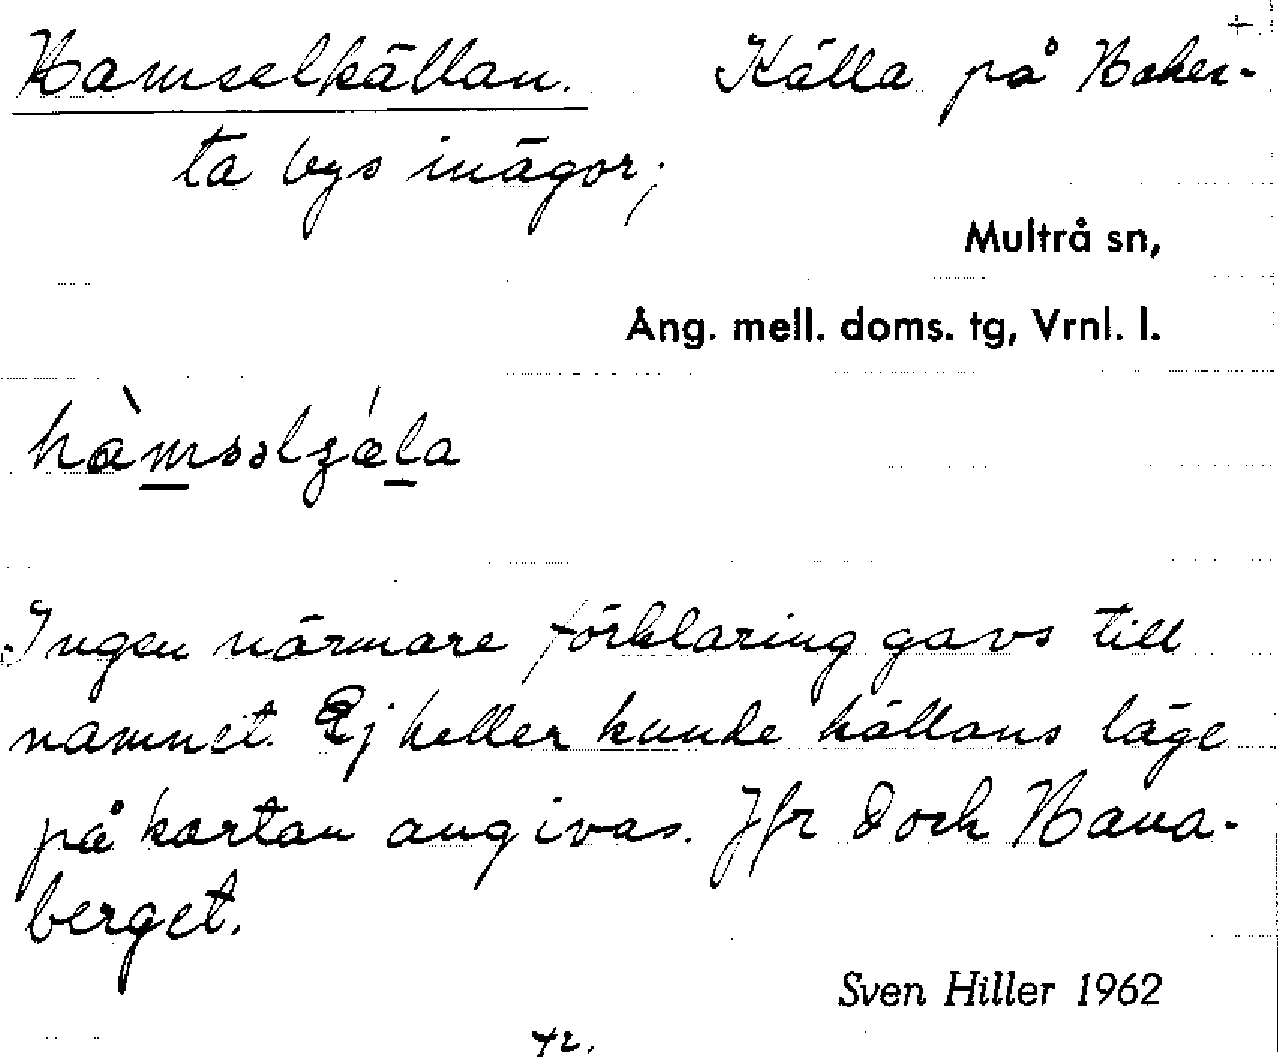 Hamselkällan. Källa på Hakes-
ta bys inägor;
Multrå sn,
Ång. mell. doms. tg, Vrnl. l.
hàmsəlʒǽla
Ingen närmare förklaring gavs till
namnet. Ej heller kunde källans läge
på kartan angivas. Jfr dock Hana-
berget.
Sven Hiller 1962